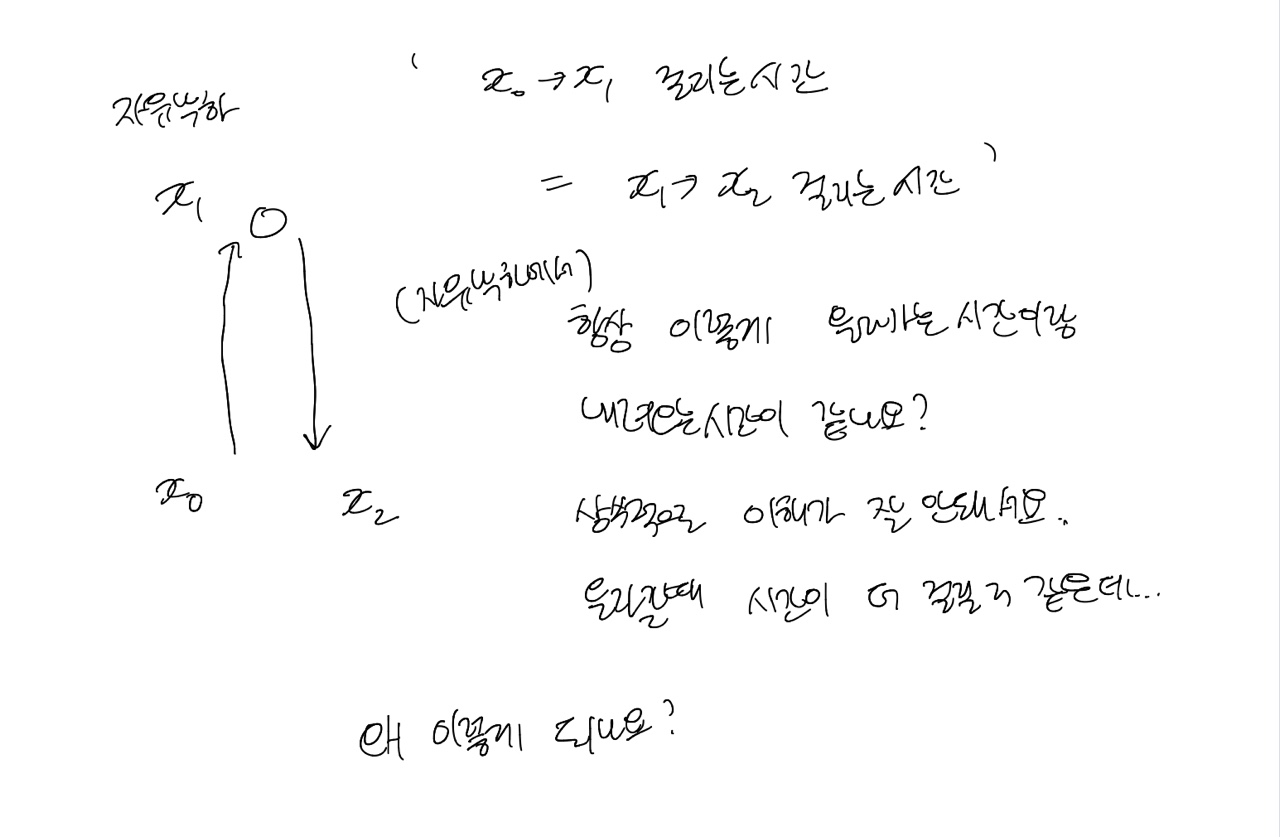 자유낙하
' x₀ → x₁ 걸리는시간
= x₁ → x₂ 걸리는 시간 '
x₁
(자유낙하에서)
항상 이렇게 올라가는 시간이랑
내려오는시간이 같나요?
x₀ x₂
상식적으로 이해가 잘 안돼서요.
올라갈때 시간이 더 걸릴거 같은데...
왜 이렇게 되나요?